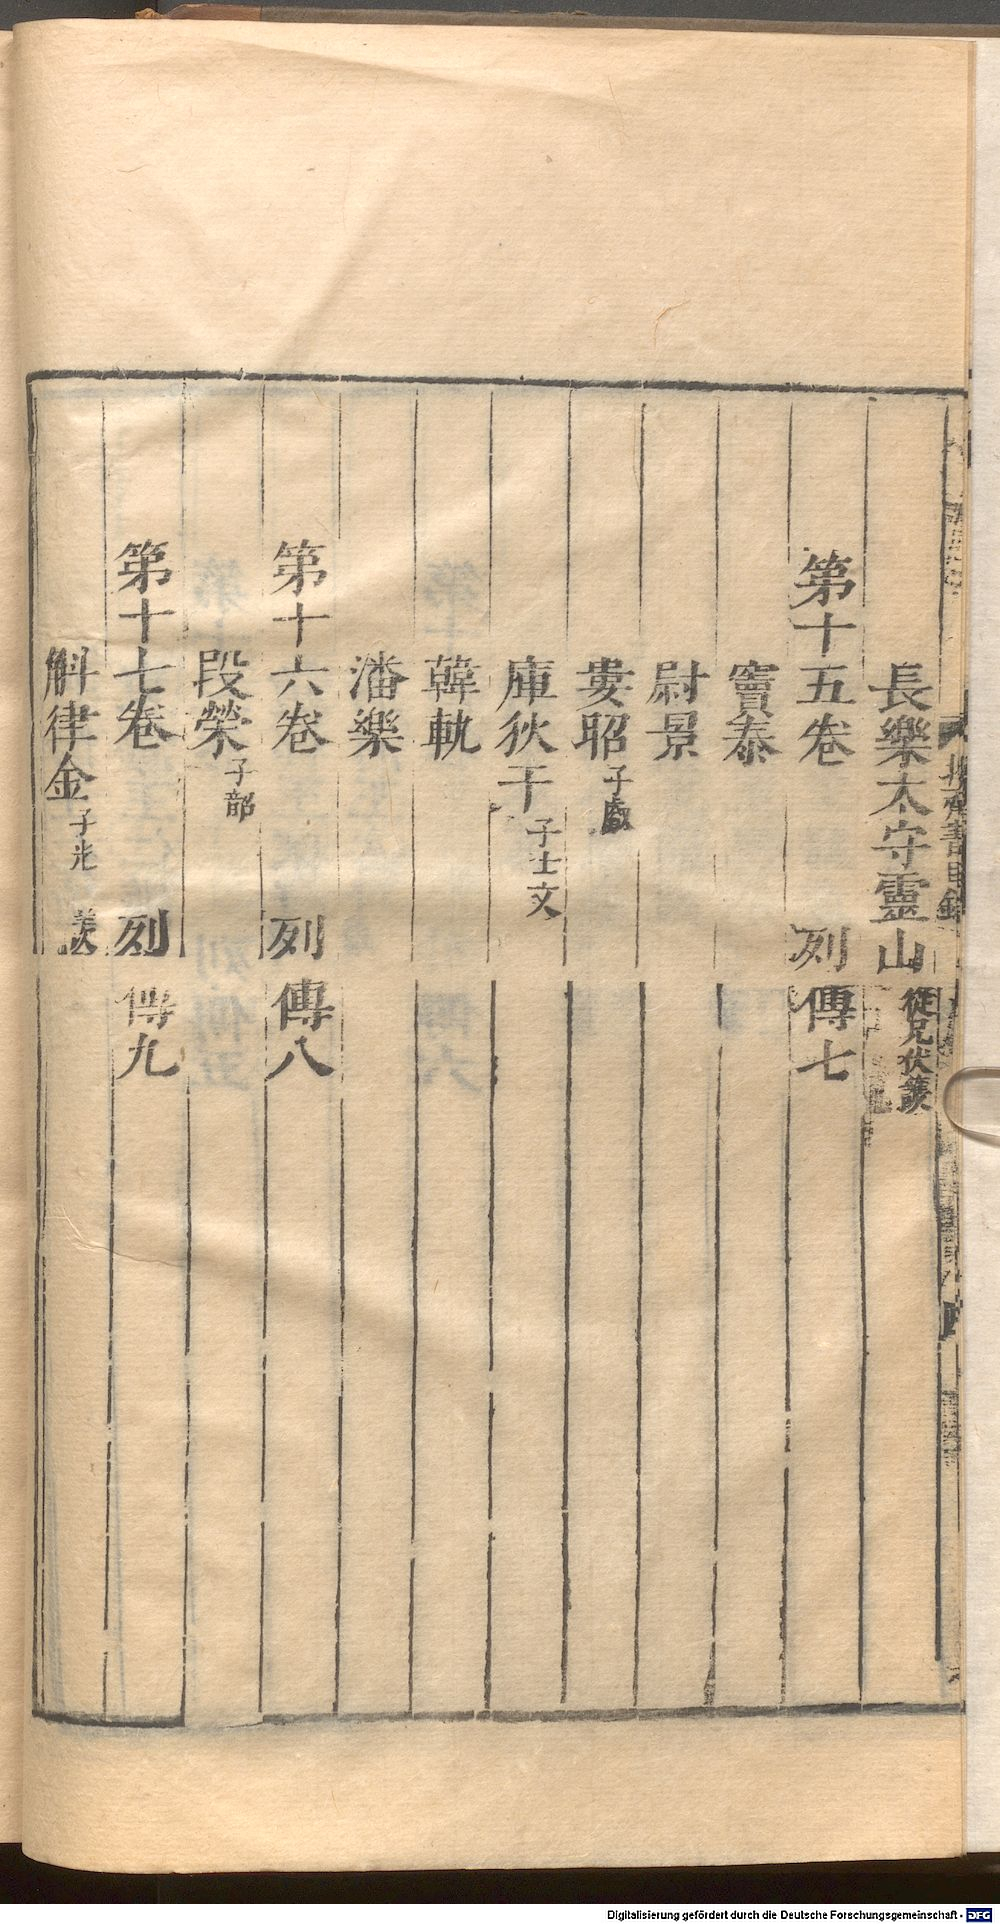 長樂太守靈山 從兄伏護
第十五卷 列傳七
竇泰
尉景
婁昭 子叡
庫狄干 子士文
韓軌
潘樂
第十六卷 列傳八
段榮 子韶
第十七卷 列傳九
斛律金 子光 羨
Digitalisierung gefördert durch die Deutsche Forschungsgemeinschaft - DFG